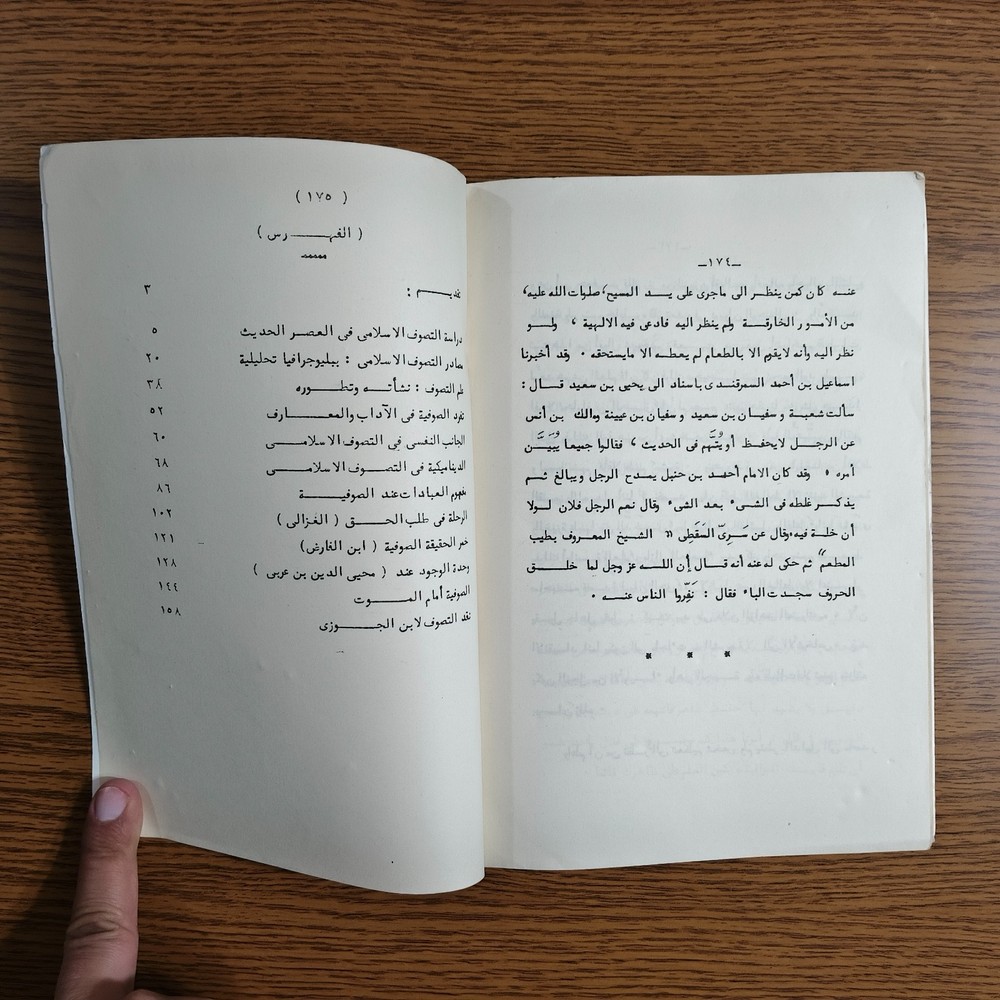 ـ١٧٤ـ
عنه كان كمن ينظر الى ماجرى على يد المسيح، صلوات الله عليه،
من الأمور الخارقة ولم ينظر اليه فادعى فيه الالهية ، ولو
نظر اليه وأنه لايقوم الا بالطعام لم يعطه الا مايستحقه . وقد أخبرنا
اسماعيل بن أحمد السمرقندى باسناد الى يحيى بن سعيد قال :
سألت شعبة وسفيان بن سعيد وسفيان بن عيينة ومالك بن أنس
عن الرجل لايحفظ أو يُتَّهم فى الحديث ، فقالوا جميعا يُبَيَّن
أمره . وقد كان الامام أحمد بن حنبل يمدح الرجل ويبالغ ثم
يذكر غلطه فى الشىء بعد الشىء وقال نعم الرجل فلان لولا
أن خلة فيه، وقال عن سَرِىّ السَقَطِى " الشيخ المعروف بطيب
المطعم" ثم حكى له عنه أنه قال إن الله عز وجل لما خلق
الحروف سجدت الباء فقال : نَفِّروا الناس عنه .
* * *
( ١٧٥ )
( الفهرس )
تقديم : ٣
دراسة التصوف الاسلامى فى العصر الحديث ٥
مصادر التصوف الاسلامى : ببليوجرافيا تحليلية ٢٠
علم التصوف : نشأته وتطوره ٣٨
تفرد الصوفية فى الآداب والمعارف ٥٢
الجانب النفسى فى التصوف الاسلامى ٦٠
الديناميكية فى التصوف الاسلامى ٦٨
مفهوم العبادات عند الصوفية ٨٦
الرحلة فى طلب الحق ( الغزالى ) ١٠٢
خمر الحقيقة الصوفية ( ابن الفارض) ١٢١
وحدة الوجود عند ( محيى الدين بن عربى ) ١٢٨
الصوفية أمام الموت ١٤٤
نقد التصوف لابن الجوزى ١٥٨